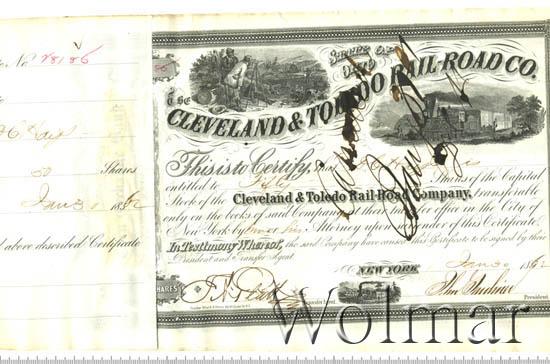 No 28186
50 Shares
Jan 30 1862
above described Certificate
STATE OF
OHIO
THE
CLEVELAND & TOLEDO RAIL-ROAD CO.
This is to Certify, that
entitled to Fifty Shares of the Capital
Stock of the Cleveland & Toledo Rail Road Company, transferable
only on the books of said Company at their transfer office in the City of
New York by Attorney upon surrender of this Certificate
In Testimony Whereof, the said Company have caused this Certificate to be signed by their
President and Transfer Agent.
NEW YORK Jan 30 1862
SHARES
President
Wolmar